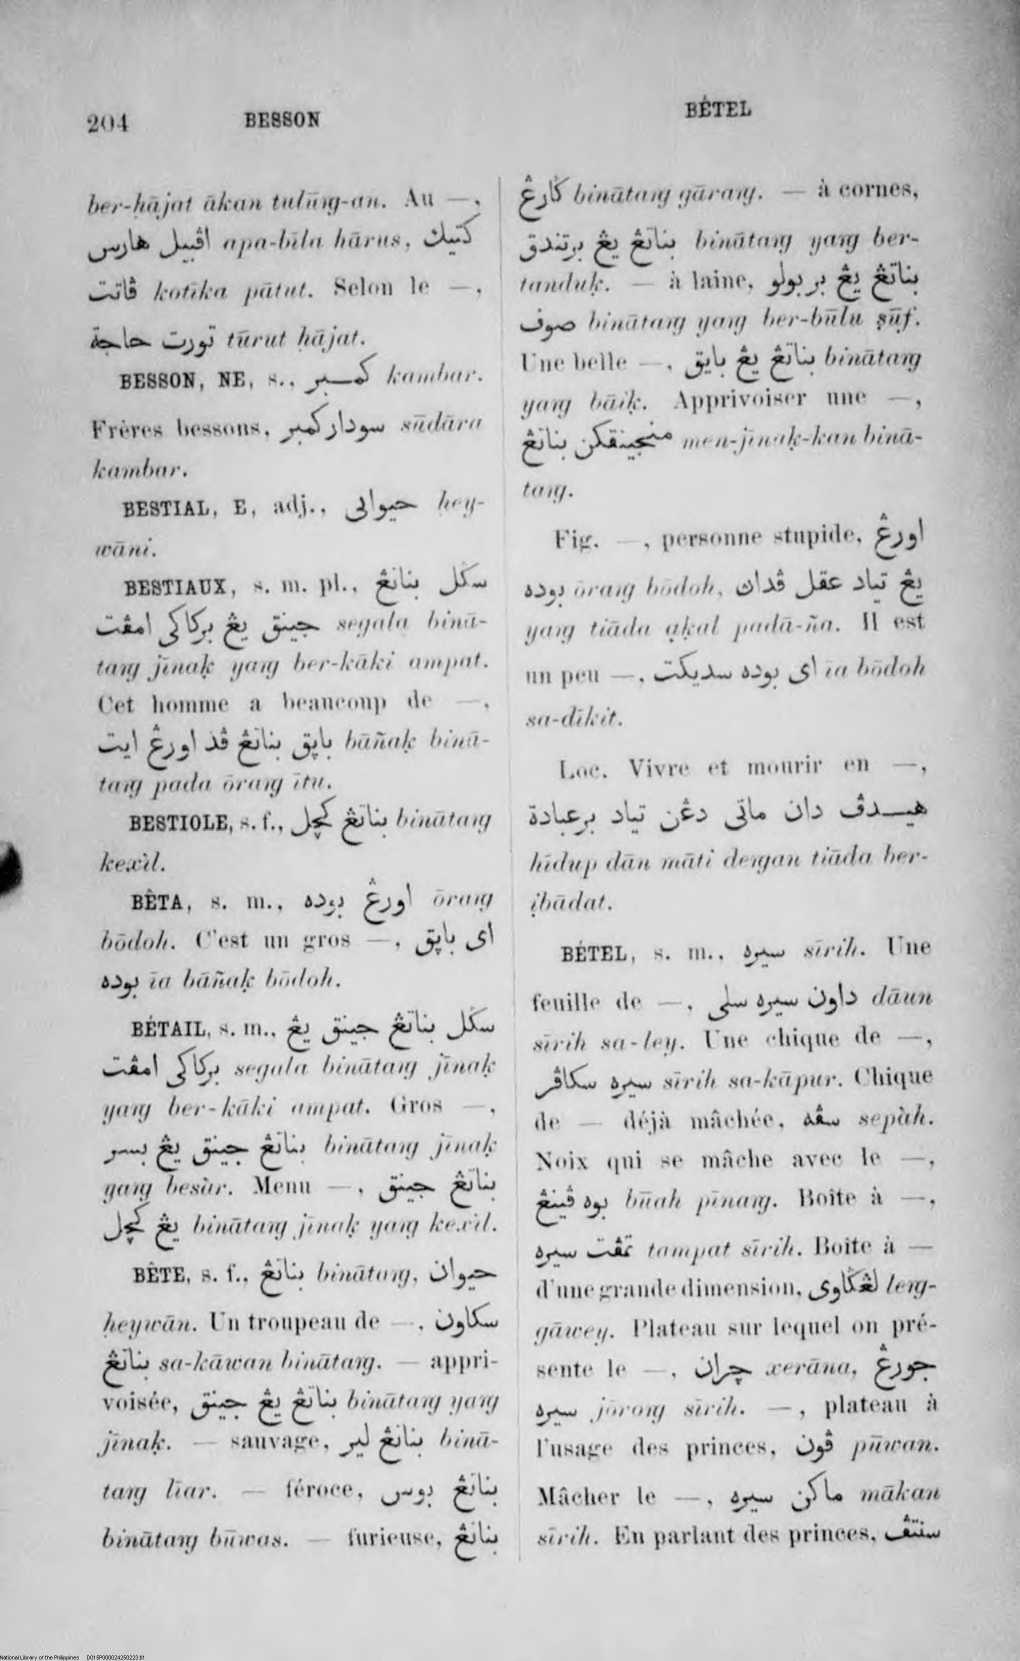 204 BESSON
BÉTEL
ber-ḥājat ākan tulūṅg-an. Au —,
اڤبيل هارس apa-bīla hārus, كتيك
ڤاتت kotīka pātut. Selon le —,
تورت حاجة tūrut ḥājat.
BESSON, NE, s., كمبر kambar.
Frères bessons, سودار كمبر sūdāra
kambar.
BESTIAL, E, adj., حيوانى ḥey-
wāni.
BESTIAUX, s. m. pl., سگل بناتڠ
جينق يڠ بركاكى امڤت segala binā-
taṅg jīnaḳ yaṅg ber-kāki ampat.
Cet homme a beaucoup de —,
باڽق بناتڠ ڤد اورڠ ايت bāñaḳ binā-
taṅg pada ōraṅg ītu.
BESTIOLE, s. f., بناتڠ كچل binātaṅg
kexìl.
BÊTA, s. m., اورڠ بوده ōraṅg
bōdoh. C'est un gros —, اى باڽق
بوده īa bāñaḳ bōdoh.
BÉTAIL, s. m., سگل بناتڠ جينق يڠ
بركاكى امڤت segala binātaṅg jīnaḳ
yaṅg ber-kāki ampat. Gros —,
بناتڠ جينق يڠ بسر binātaṅg jīnaḳ
yaṅg besàr. Menu —, بناتڠ جينق
يڠ كچل binātaṅg jīnaḳ yaṅg kexìl.
BÊTE, s. f., بناتڠ binātaṅg, حيوان
ḥeywān. Un troupeau de —, سكاون
بناتڠ sa-kāwan binātaṅg. — appri-
voisée, بناتڠ يڠ جينق binātaṅg yaṅg
jīnaḳ. — sauvage, بناتڠ لير binā-
taṅg līar. — féroce, بناتڠ بوس
binātaṅg būwas. — furieuse, بناتڠ
گارڠ binātaṅg gāraṅg. — à cornes,
بناتڠ يڠ برتندق binātaṅg yaṅg ber-
tanduḳ. — à laine, بناتڠ يڠ بر بولو
صوف binātaṅg yaṅg ber-būlu ṣūf.
Une belle —, بناتڠ يڠ بايق binātaṅg
yaṅg bāiḳ. Apprivoiser une —,
منجينقكن بناتڠ men-jīnaḳ-kan binā-
taṅg.
Fig. —, personne stupide, اورڠ
بوده ōraṅg bōdoh, يڠ تياد عقل ڤدان
yaṅg tiāda ạḳal padā-ña. Il est
un peu —, اى بوده سديكت īa bōdoh
sa-dīkit.
Loc. Vivre et mourir en —,
هيدڤ دان ماتى دڠن تياد برعبادة
hīdup dān māti deṅgan tiāda ber-
ịbādat.
BÉTEL, s. m., سيره sīrih. Une
feuille de —, داون سيره سلى dāun
sīrih sa-ley. Une chique de —,
سيره سكاڤر sīrih sa-kāpur. Chique
de — déjà mâchée, سڤه sepàh.
Noix qui se mâche avec le —,
بوه ڤينڠ būah pīnaṅg. Boîte à —,
تمڤت سيره tampat sīrih. Boîte à —
d'une grande dimension, لڠگاوى leṅg-
gāwey. Plateau sur lequel on pré-
sente le —, چران xerāna, جورڠ
سيره jōroṅg sīrih. —, plateau à
l'usage des princes, ڤون pūwan.
Mâcher le —, ماكن سيره mākan
sīrih. En parlant des princes, سنتڤ
National Library of the Philippines